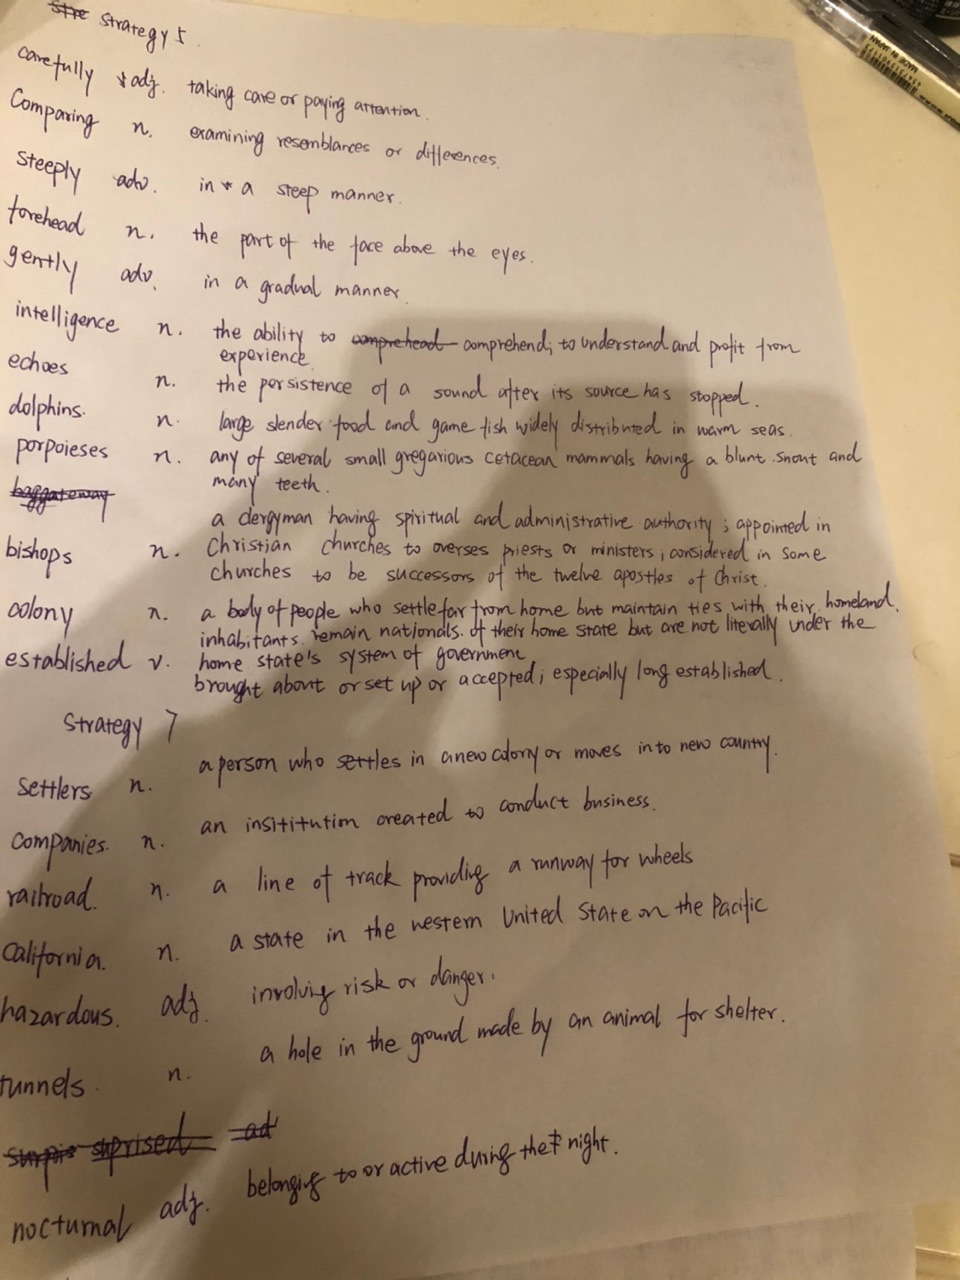 Strategy 5.
carefully adj. taking care or paying attention.
Comparing n. examining resemblances or differences.
steeply adv. in a steep manner.
forehead n. the part of the face above the eyes.
gently adv. in a gradual manner.
intelligence n. the ability to comprehead comprehend; to understand and profit from
experience.
echoes n. the persistence of a sound after its source has stopped.
dolphins. n. large slender food and game fish widely distributed in warm seas.
porpoieses n. any of several small gregarious cetacean mammals having a blunt snout and
many teeth.
baggateway
a clergyman having spiritual and administrative authority; appointed in
bishops n. Christian churches to overses priests or ministers; considered in some
churches to be successors of the twelve apostles of Christ.
colony n. a body of people who settle far from home but maintain ties with their homeland.
inhabitants remain nationals of their home state but are not literally under the
home state's system of government
established v. brought about or set up or accepted; especially long established.
Strategy 7
settlers n. a person who settles in a new colony or moves into new country.
companies. n. an insititution created to conduct business.
railroad. n. a line of track providing a runway for wheels
California. n. a state in the western United State on the Pacific
hazardous. adj. involving risk or danger.
tunnels. n. a hole in the ground made by an animal for shelter.
surpis suprised ad
nocturnal adj. belonging to or active during the night.